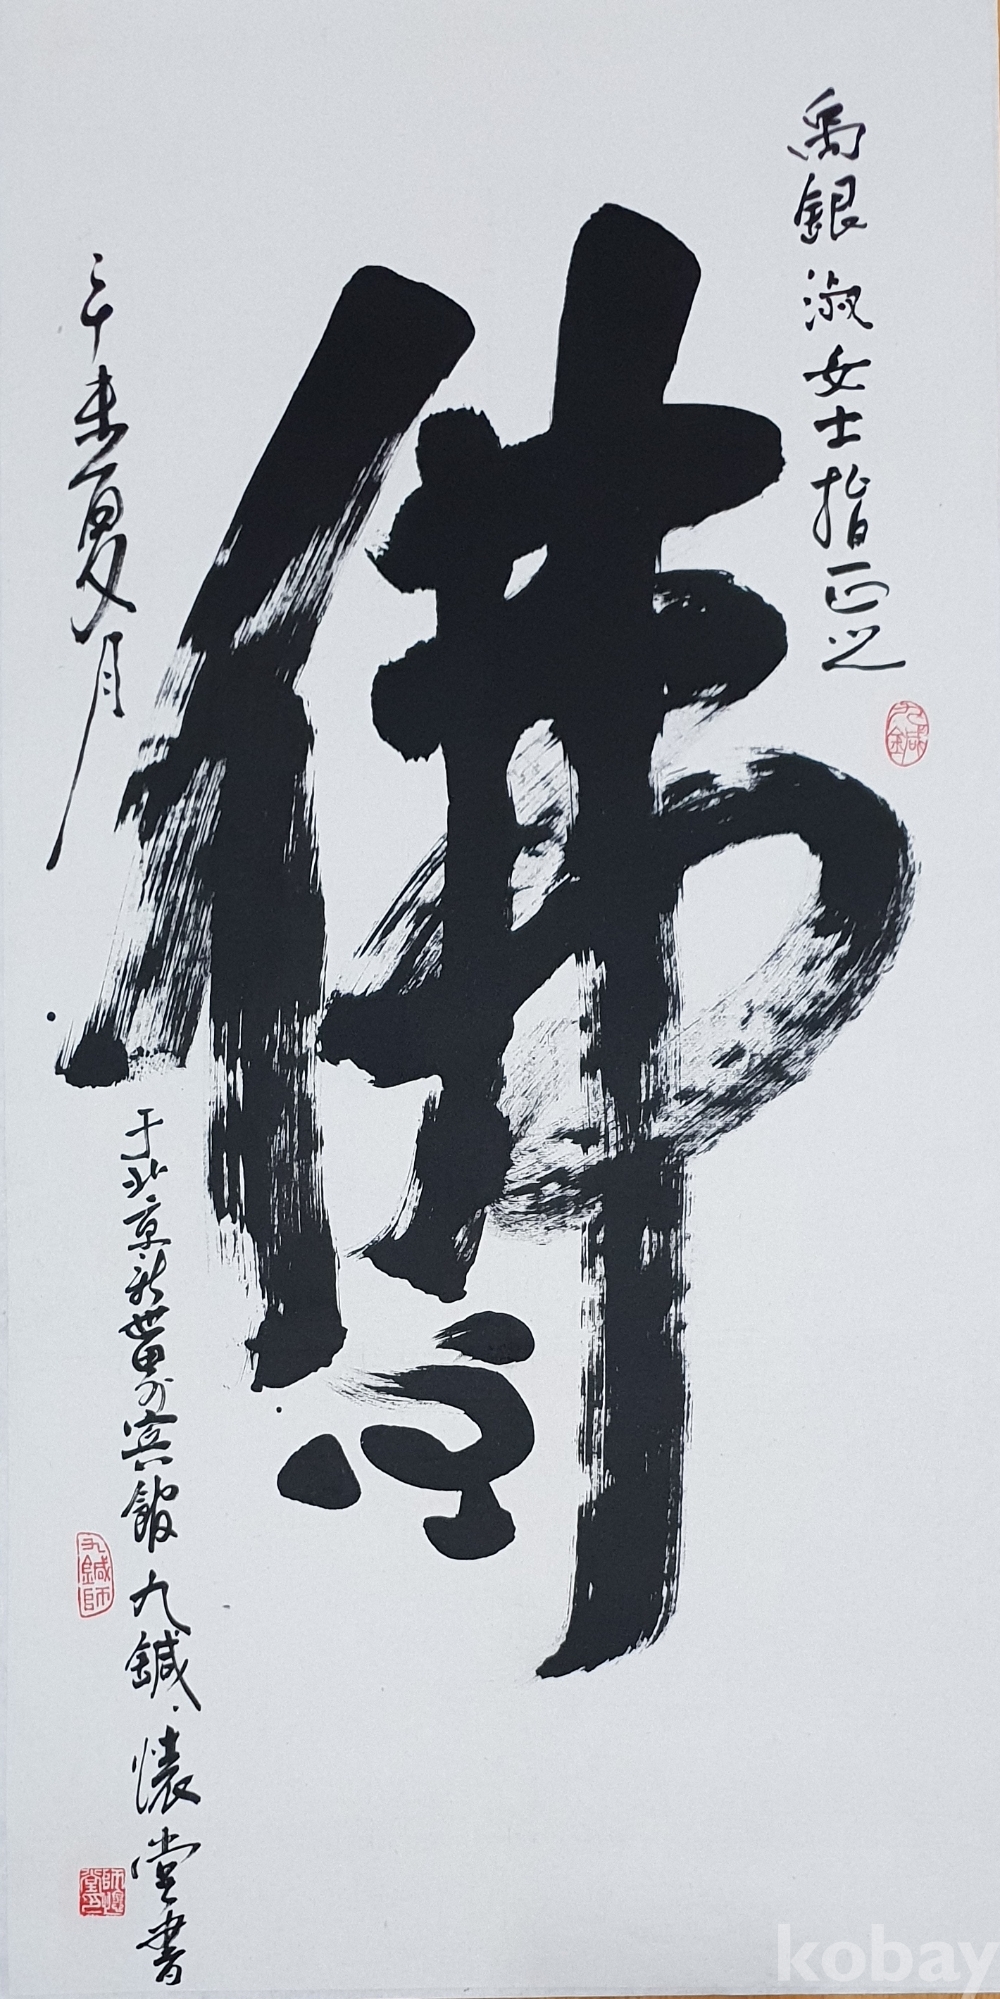 禹銀淑女士指正之
九鍼
佛心
辛未夏月
于北京新世界賓館九鍼懷堂書
九鍼師
kobay